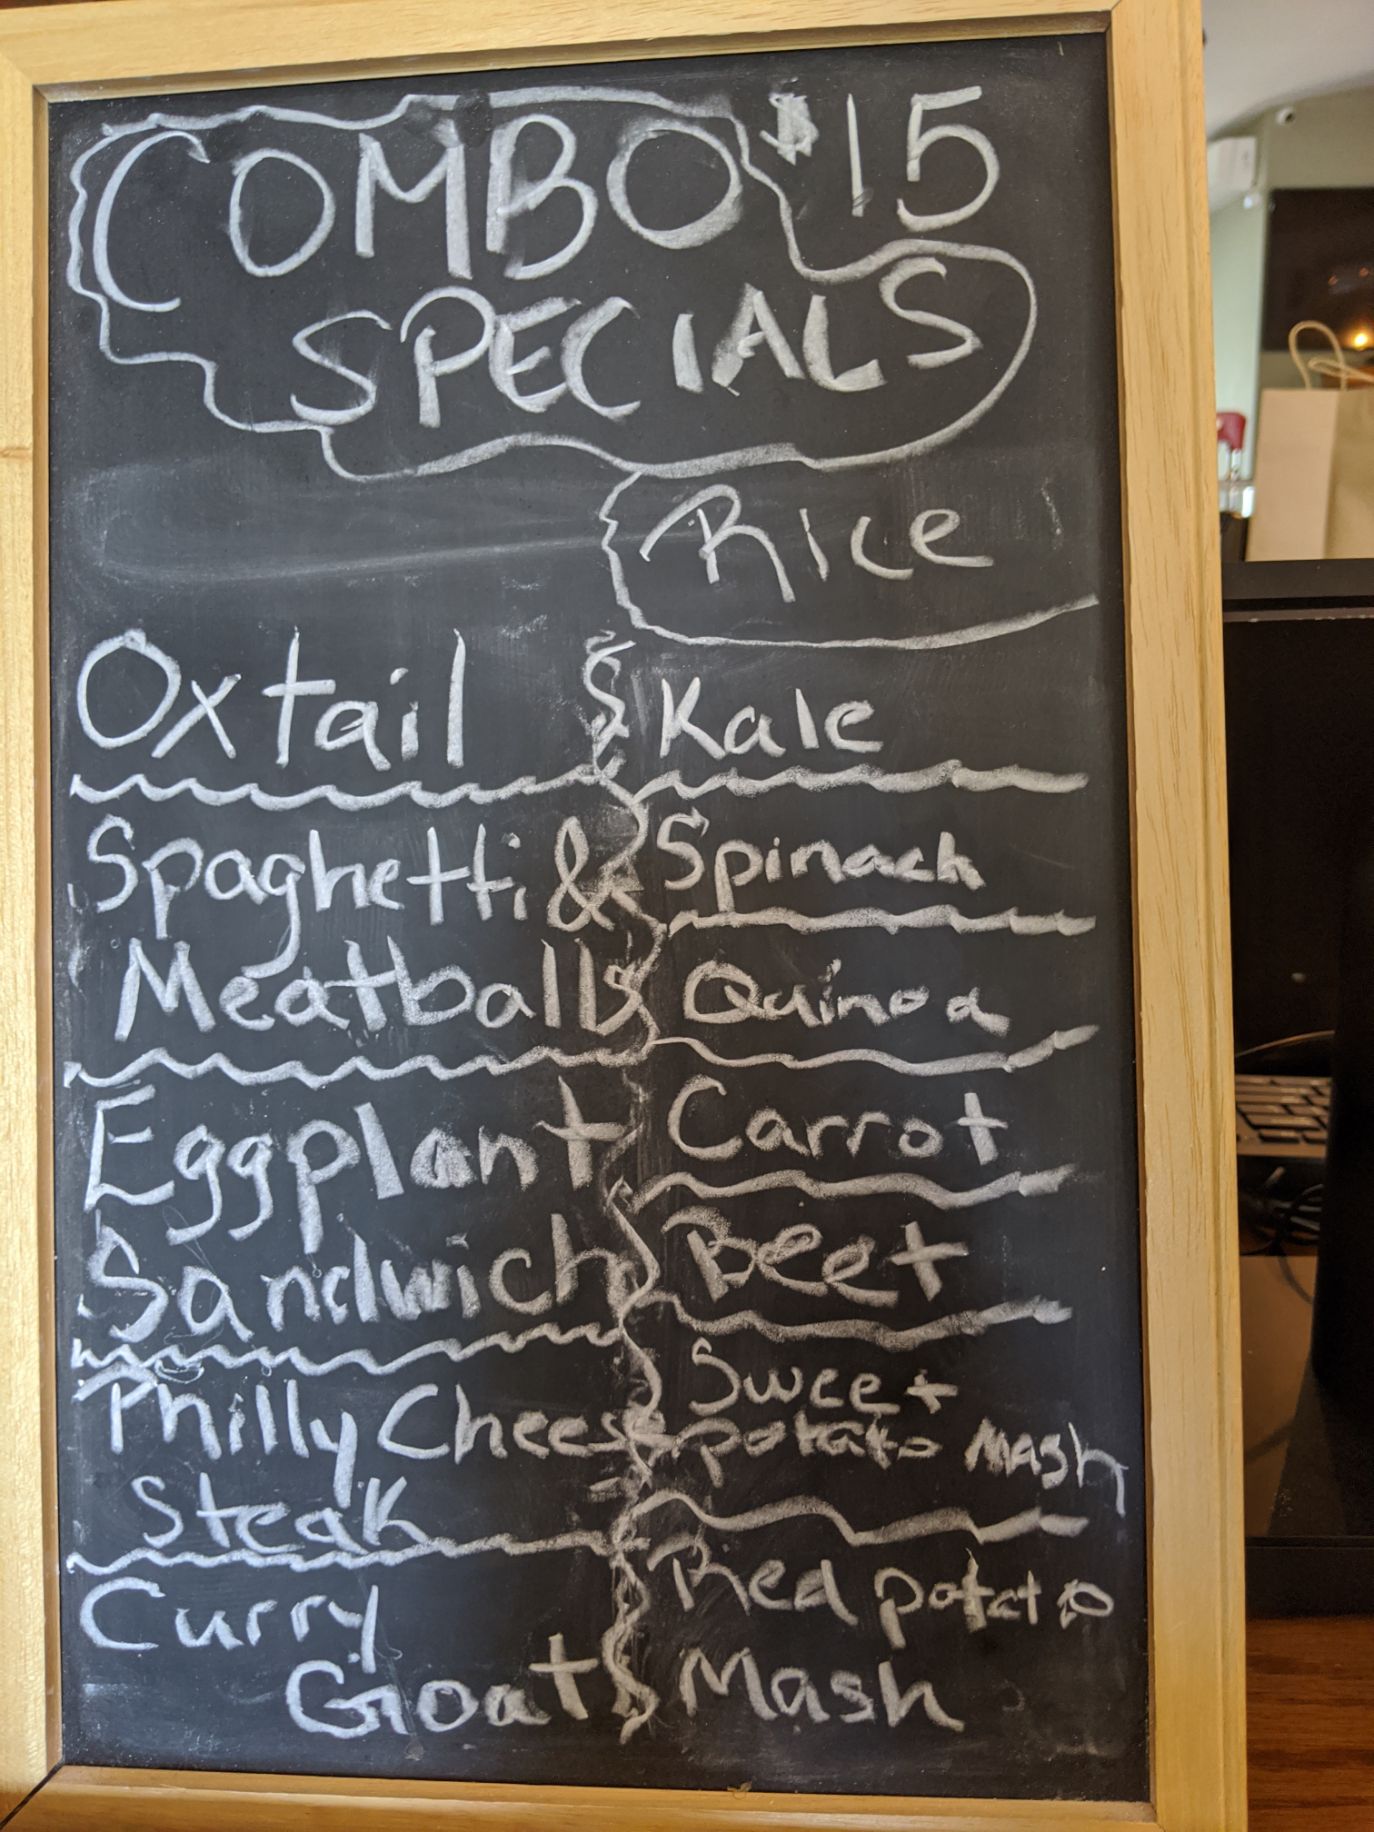 COMBO $15
SPECIALS
Rice
Oxtail
Kale
Spaghetti &
Meatballs
Spinach
Quinoa
Eggplant
Sandwich
Carrot
Beet
Philly Cheese
Steak
Sweet
potato Mash
Curry
Goat
Red potato
Mash